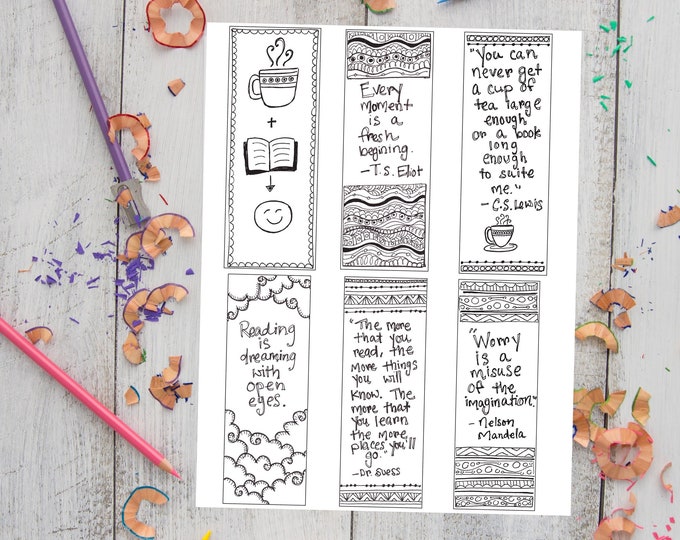 +
Every
moment
is a
fresh
begining.
-T.S. Eliot
"You can
never get
a cup of
tea large
enough
or a book
long
enough
to suite
me."
- C.S. Lewis
Reading
is
dreaming
with
open
eyes.
"The more
that you
read, the
more things
you will
know. The
more that
you learn
the more
places you'll
go."
-Dr. Suess
"Worry
is a
misuse
of the
imagination."
- Nelson
Mandela